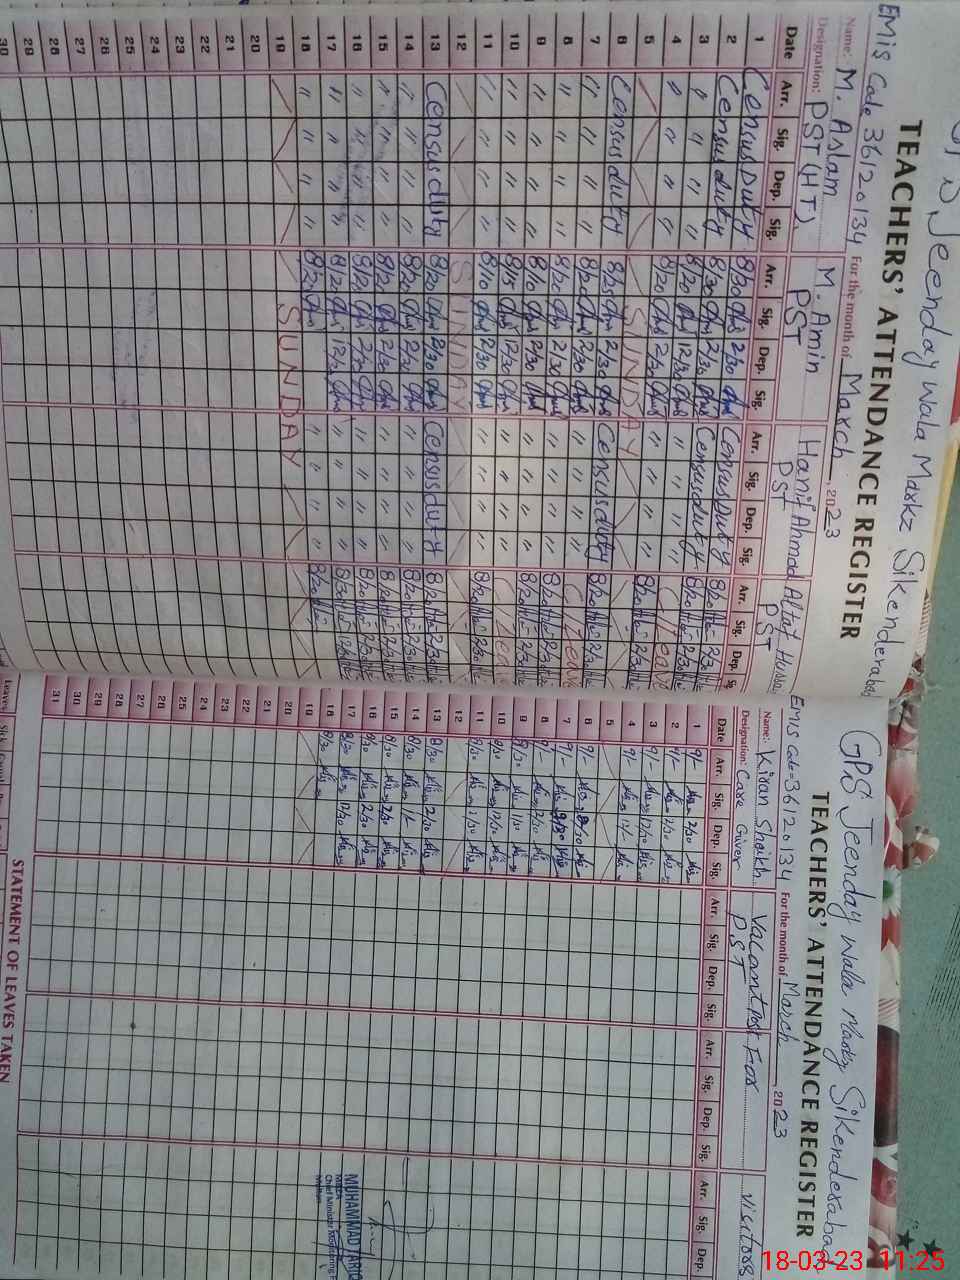 GPS Jeenday Wala Markz Sikenderabad
TEACHERS' ATTENDANCE REGISTER
EMIS Code 36120134 For the month of March, 2023
Name: M. Aslam M. Amin Hanif Ahmad Altaf Hussa
Designation: PST (HT) PST PST PST
Date Arr. Sig. Dep. Sig. Arr. Sig. Dep. Sig. Arr. Sig. Dep. Sig. Arr. Sig. Dep.
1 Census Duty 8/30 2/30 Census Duty 8/20 2/30
2 Census duty 8/30 2/30 Census duty 8/20 2/30
3 " " " " 8/20 12/30 " " " "
4 " " " " 8/20 2/30 " " " " 8/20 2/30
5 SUNDAY
6 Census duty 8/25 2/30 Census duty 8/20 2/30
7 " " " " 8/20 2/30 " " " "
8 " " " " 8/20 2/30 " " " " 8/20 2/30
9 " " " " 8/10 2/30 " " " " 8/20 2/30
10 " " " " 8/15 12/30 " " " "
11 " " " " 8/10 2/30 " " " " 8/20 2/30
12 SUNDAY
13 Census duty 8/20 2/30 Census duty 8/20 2/30
14 " " " " 8/20 2/30 " " " " 8/20 2/30
15 " " " " 8/20 2/30 " " " " 8/20 2/30
16 " " " " 8/20 2/30 " " " " 8/20 2/30
17 " " " " 8/20 12/30 " " " " 8/20 12/30
18 " " " " 8/20 " " " " 8/20
19 SUNDAY
20
21
22
23
24
25
26
27
28
29
30
GPS Jeenday Wala Markz Sikenderabad
TEACHERS' ATTENDANCE REGISTER
EMIS Code = 36120134 For the month of March, 2023
Name: Kiran Shaikh Vacant Post For Visitors
Designation: Care Giver PST
Date Arr. Sig. Dep. Sig. Arr. Sig. Dep. Sig. Arr. Sig. Dep. Sig. Arr. Sig. Dep.
1 9/- 2/30
2 9/- 2/30
3 9/- 12/30
4 9/- 12/-
5
6 9/- 2/30
7 9/- 2/30
8 9/- 2/30
9 8/30
10 8/30 12/30
11 8/30 2/30
12
13 8/30 2/30
14 8/30
15 8/30 2/30
16 8/30 2/30
17 8/30 12/30
18 8/30
19
20
21
22
23
24
25
26
27
28
29
30
31
MUHAMMAD TARIQ
MEA
Chief Minister Monitoring
Multan
STATEMENT OF LEAVES TAKEN
Leaves
18-03-23 11:25